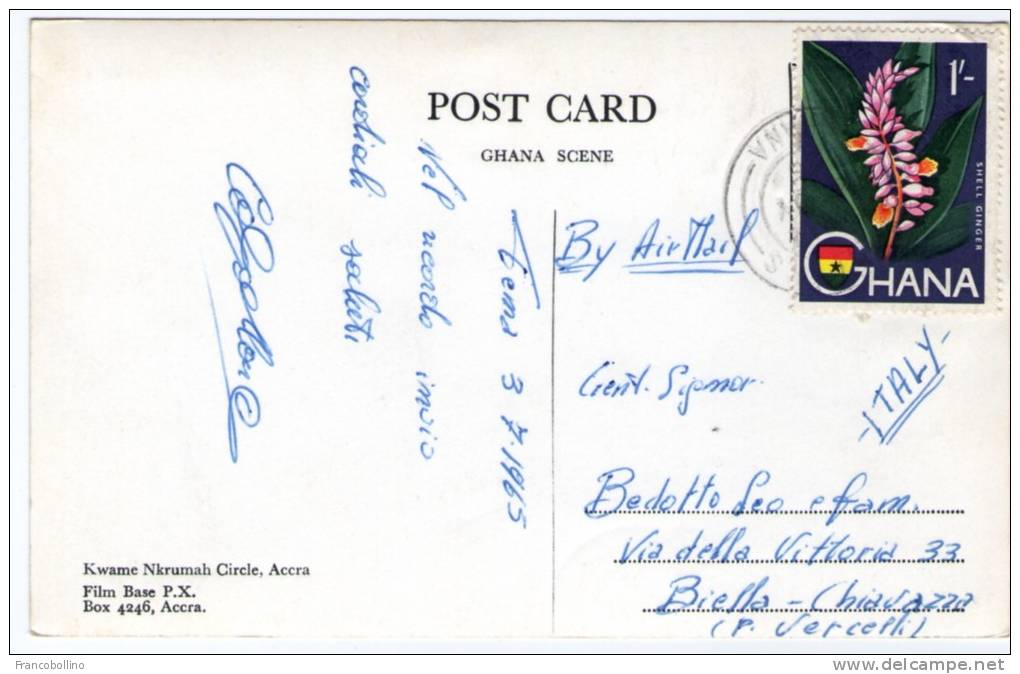 POST CARD
GHANA SCENE
Tema 3 7.1965
Nel ricordo invio
cordiali saluti
Kwame Nkrumah Circle, Accra
Film Base P.X.
Box 4246, Accra.
By AirMail
1/-
SHELL GINGER
GHANA
ITALY
Gent. Signor.
Bedotto Leo e fam.
Via della Vittoria 33
Biella - Chiavazza
(P. Vercelli)
Francobollino
delcampe.net